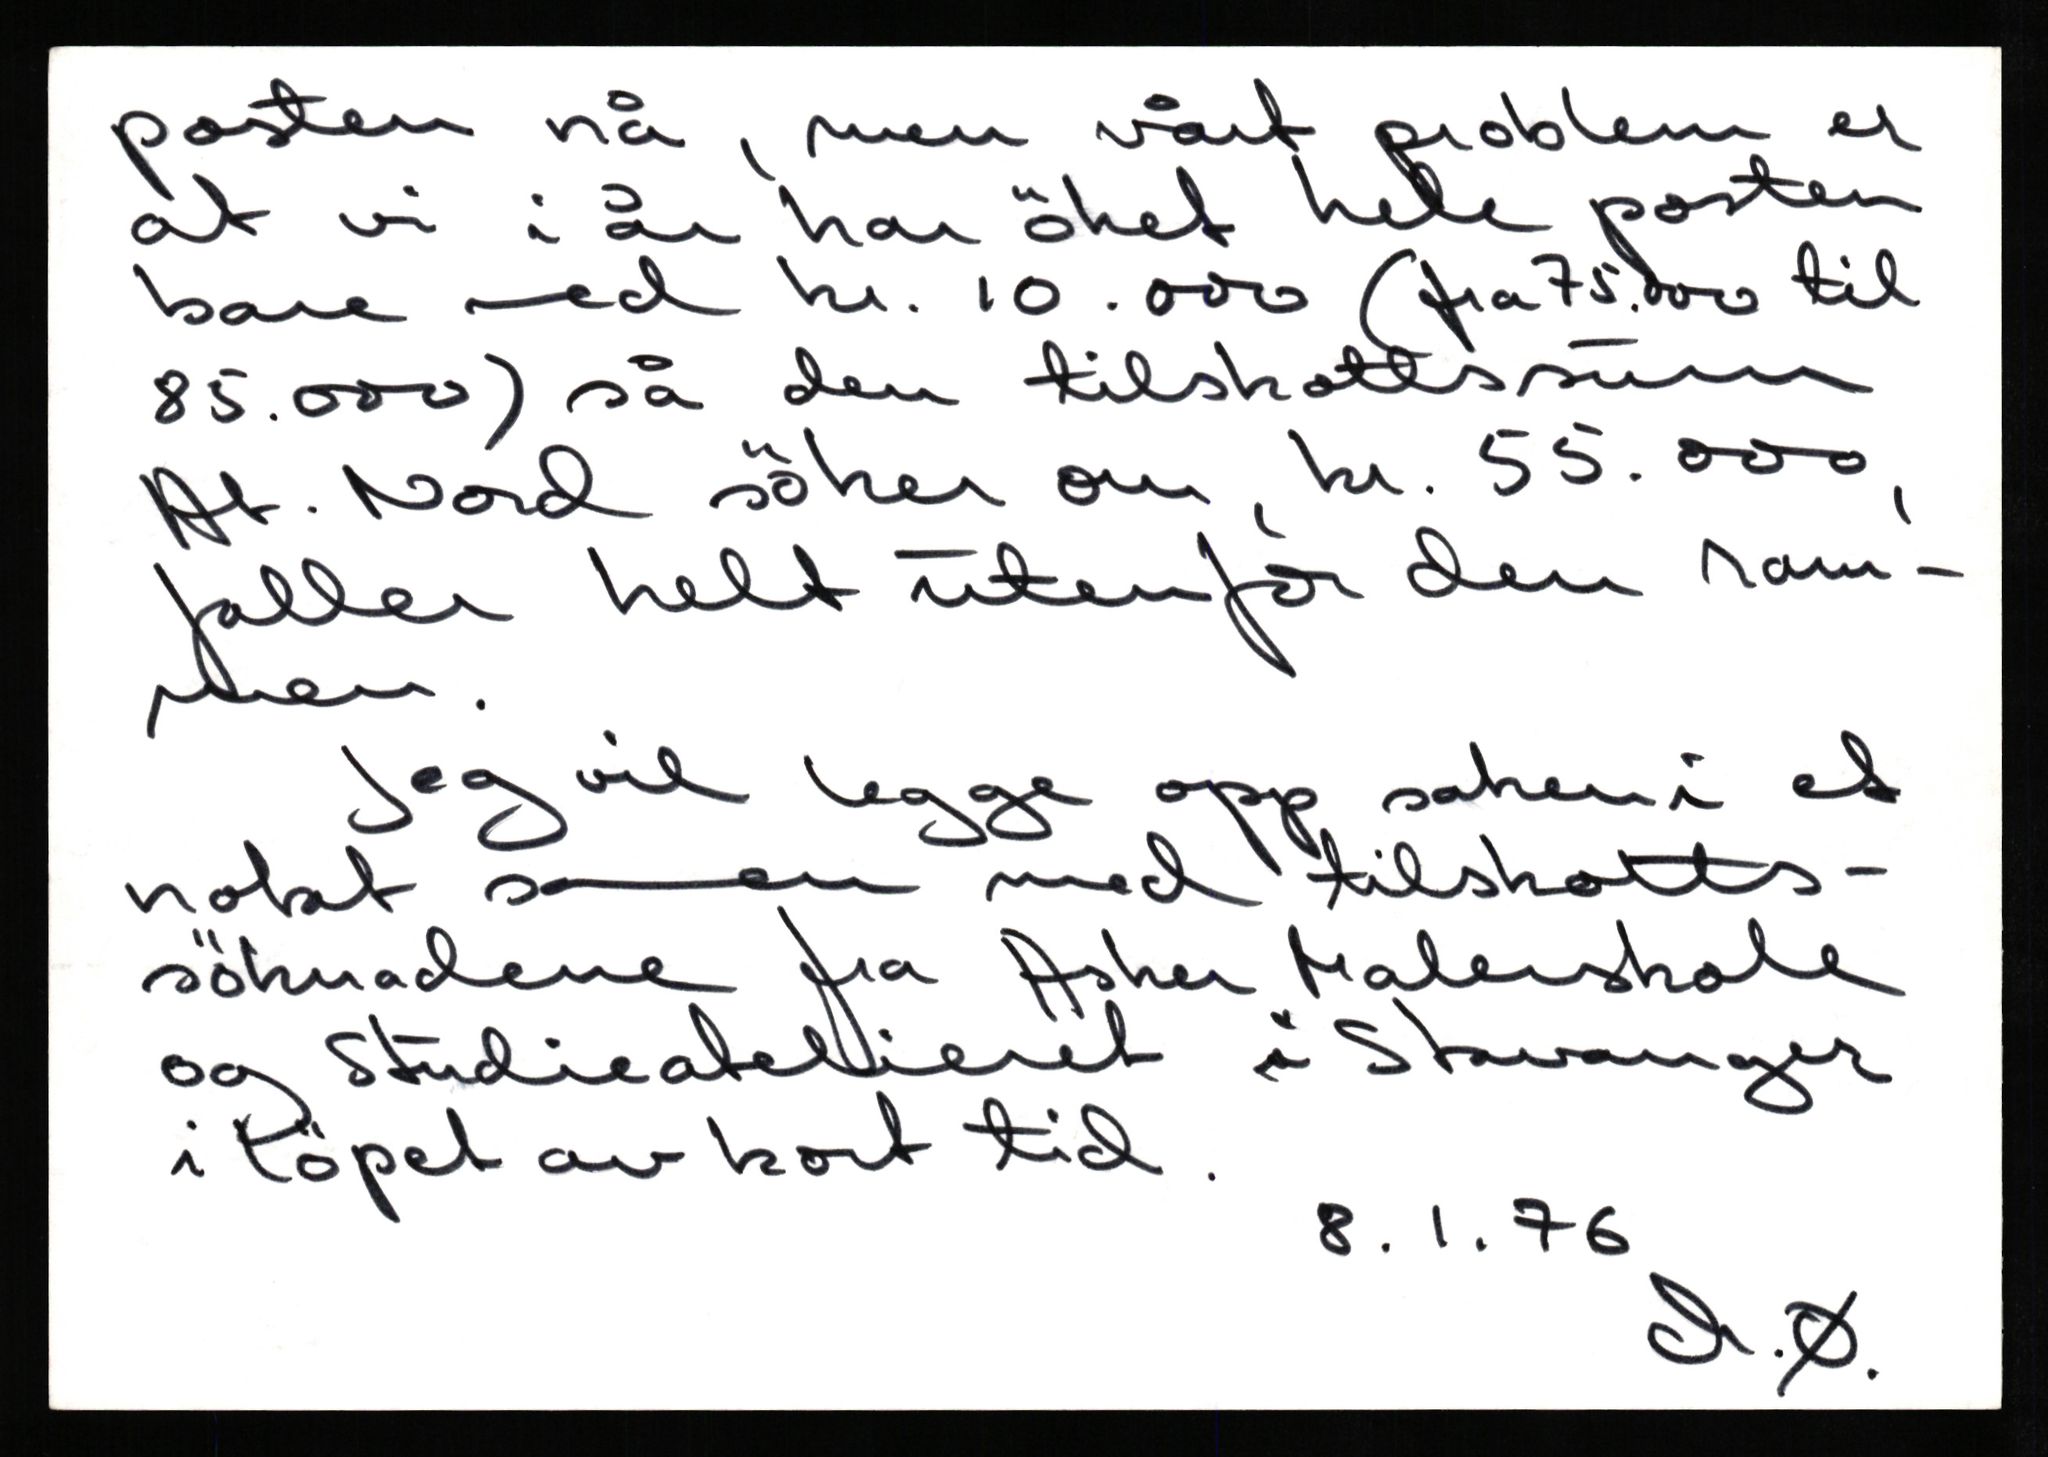 posten nå, men vårt problem er
at vi i år har öket hele posten
bare med kr. 10.000 (fra 75.000 til
85.000) så den tilskottssum
At. Nord söker om, kr. 55.000,
faller helt utenfor den ram-
men.
Jeg vil legge opp saken i et
notat sammen med tilskotts-
söknadene fra Asker Malerskole
og Studieatelieret i Stavanger
i löpet av kort tid.
8.1.76
Ø.